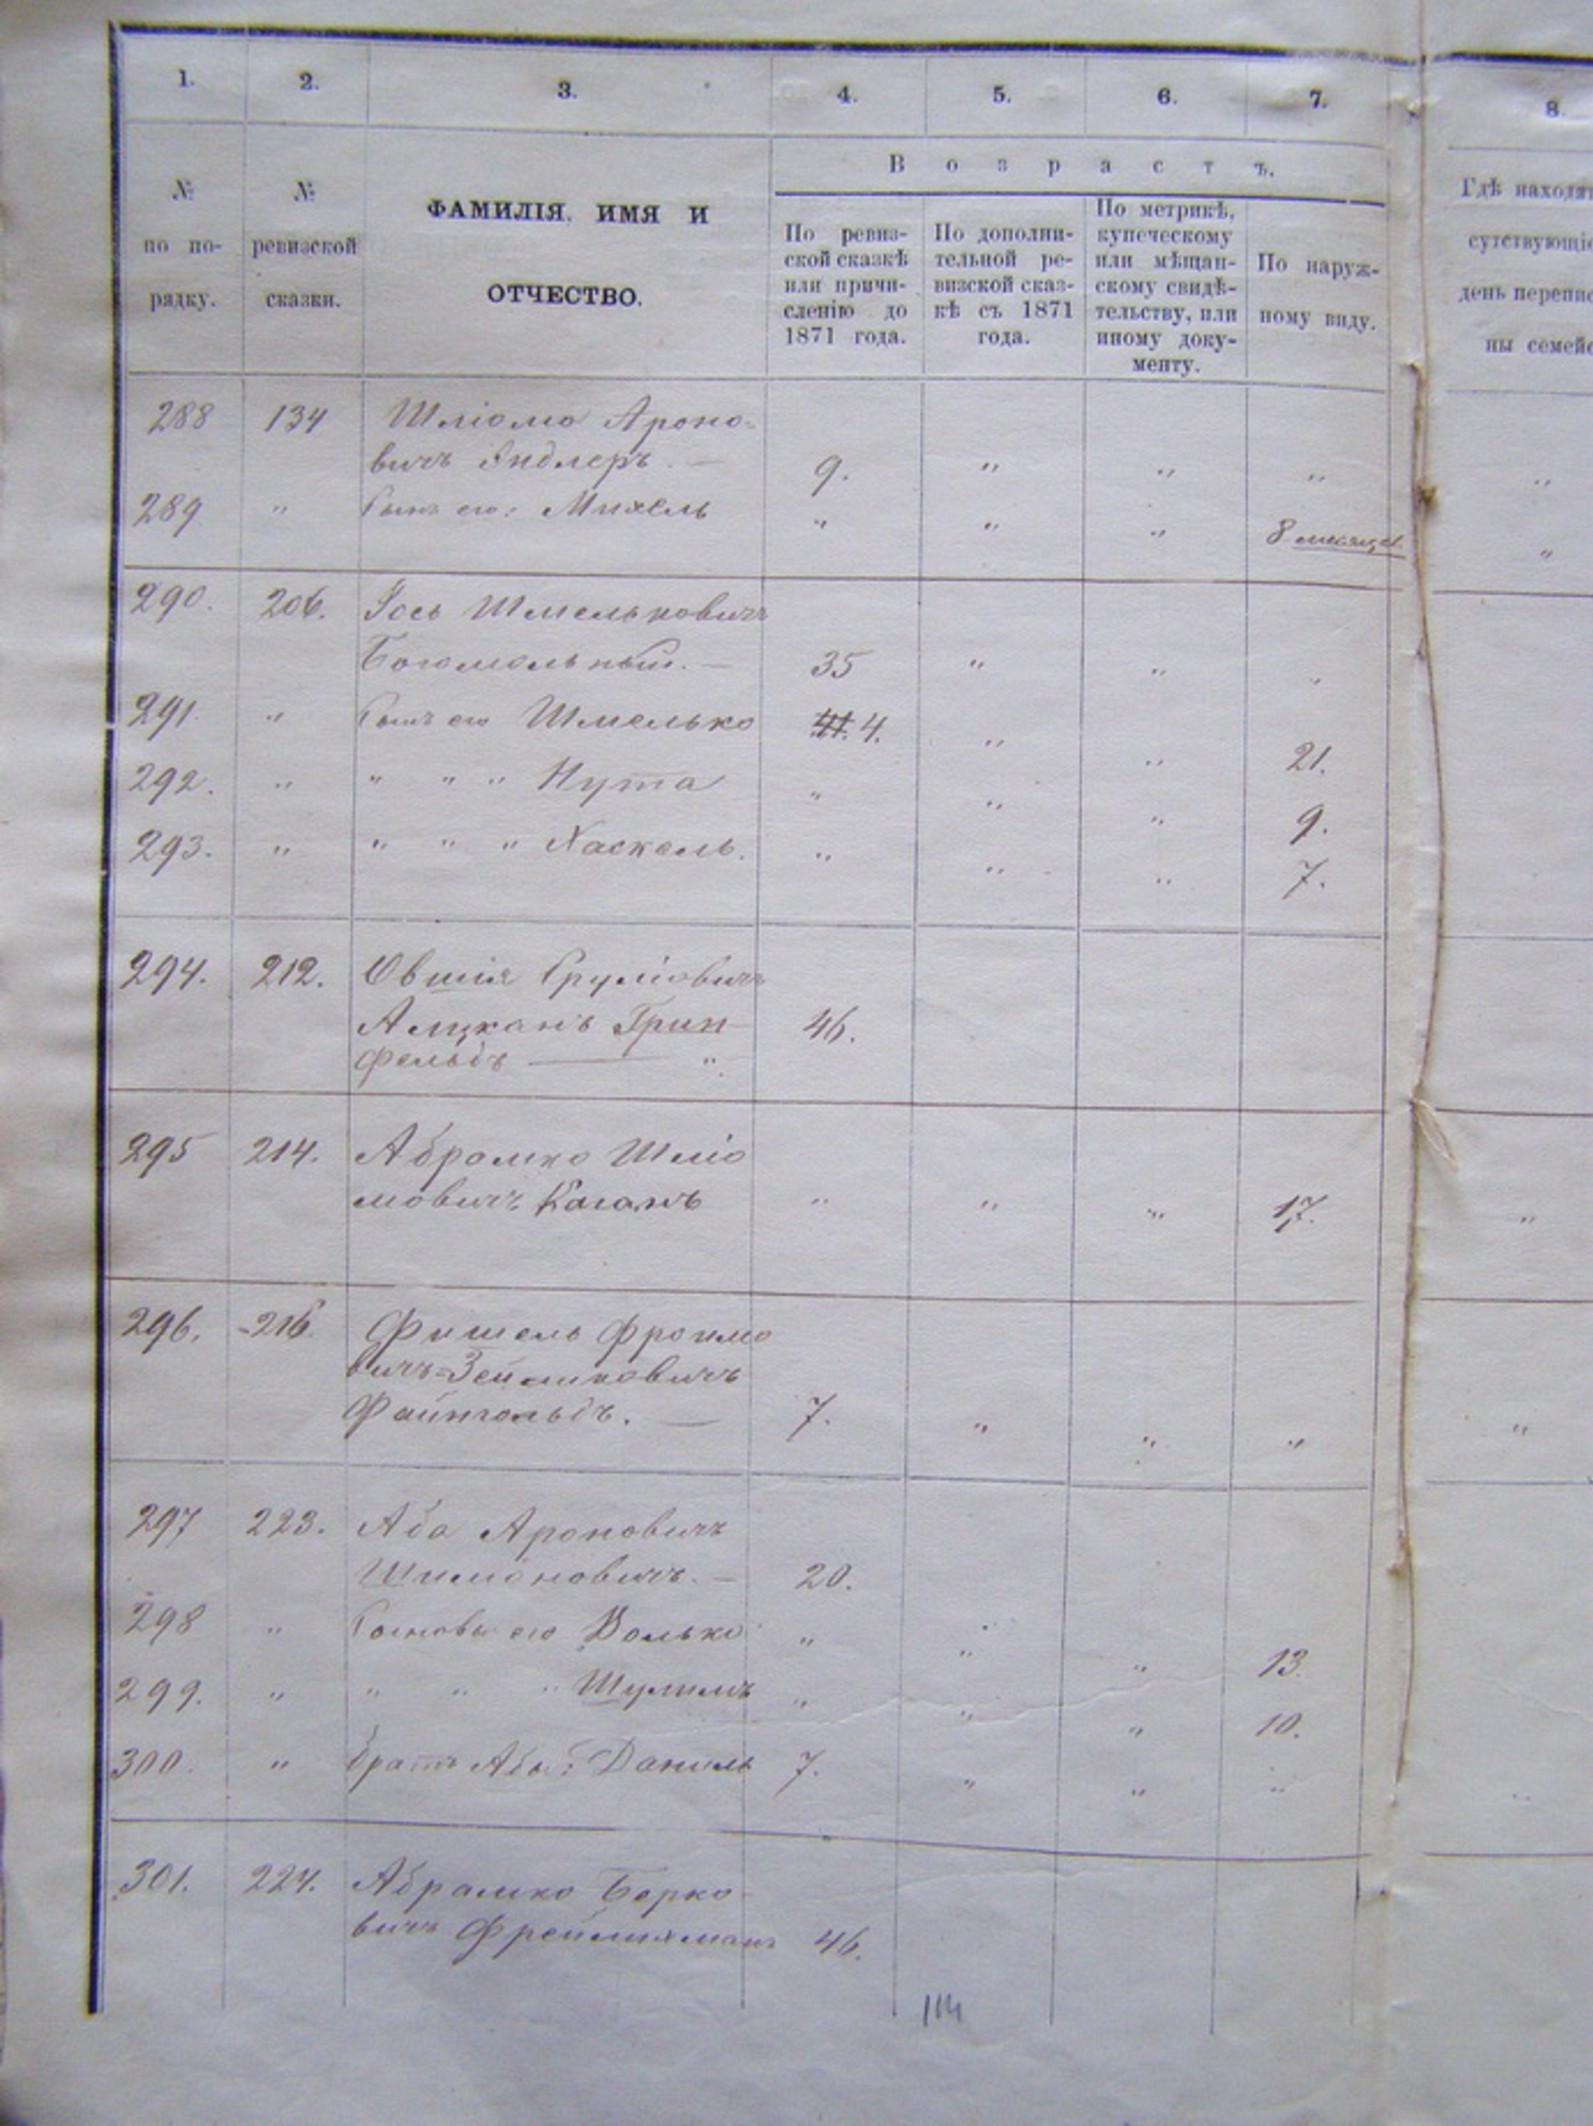 1. 2. 3. 4. 5. 6. 7. 8.
Возрастъ.
№ по по-рядку.
№ ревизской сказки.
ФАМИЛІЯ, ИМЯ И
ОТЧЕСТВО.
По ревиз-
ской сказкѣ
или причи-
сленію до
1871 года.
По дополни-
тельной ре-
визской сказ-
кѣ съ 1871
года.
По метрикѣ,
купеческому
или мѣщан-
скому свидѣ-
тельству, или
иному доку-
менту.
По наруж-
ному виду.
Гдѣ находят
сутствующіе
день перепис
ны семейс
288 134 Шліома Ароно-
вичъ 9. " " " "
289 " Сынъ его: Михель " " " 8 месяцы. "
290. 206. Іось Шмельковичъ
Богомольный. — 35 " " "
291. " Сынъ его Шмелько 4. " " 21.
292. " " " " Нута " " " 9.
293. " " " " Хаскель. " " " 7.
294. 212. Овшія Сруліовичъ
Грин
фельдъ — " 46.
295 214. Абрамко Шліо
мовичъ Каганъ " " " 17. "
296. 216. Фишель Фроимо
вичъ=Зейликовичъ
Файнгольдъ. — 7. " " " "
297 223. Аба Ароновичъ
Шимоновичъ. — 20.
298 " Сыновья его Волько " " " 13.
299. " " " " Шулимъ " " " 10.
300. " братъ Абы: Даниль 7. " " "
301. 224. Абрамко Берко-
вичъ Фреймихманъ 46.